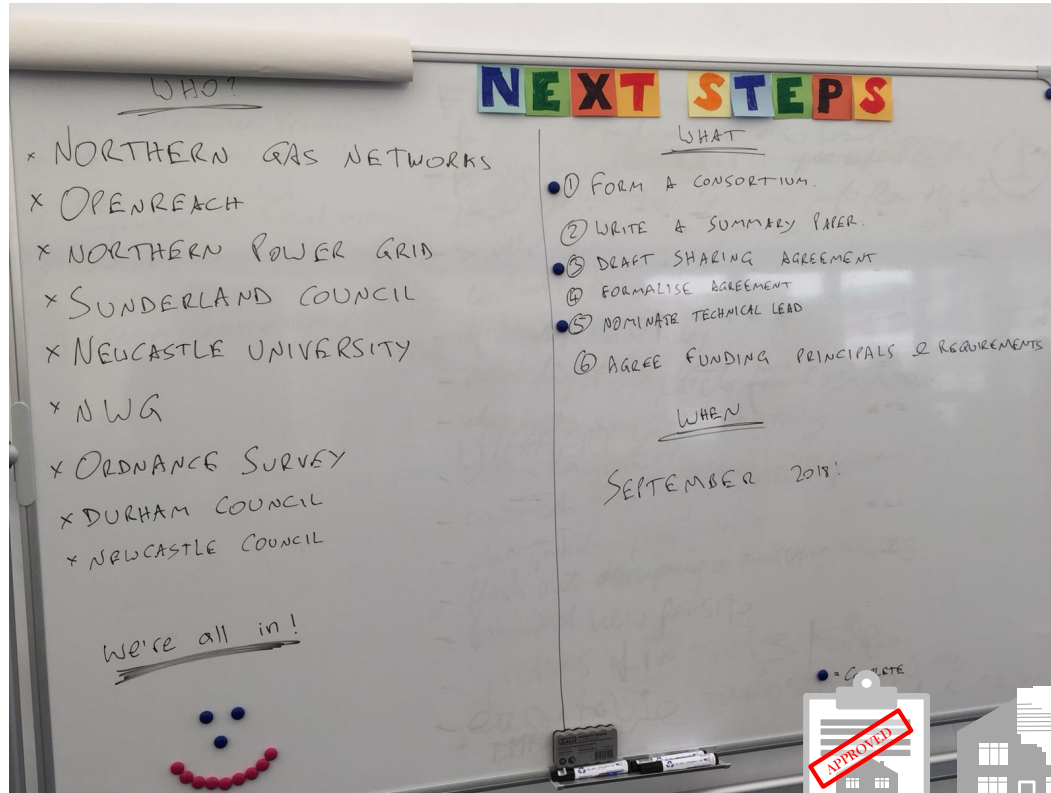 NEXT STEPS
WHO?
x NORTHERN GAS NETWORKS
x OPENREACH
x NORTHERN POWER GRID
x SUNDERLAND COUNCIL
x NEWCASTLE UNIVERSITY
x NWG
x ORDNANCE SURVEY
x DURHAM COUNCIL
x NEWCASTLE COUNCIL
We're all in!
WHAT
① FORM A CONSORTIUM.
② WRITE A SUMMARY PAPER.
③ DRAFT SHARING AGREEMENT
④ FORMALISE AGREEMENT
⑤ NOMINATE TECHNICAL LEAD
⑥ AGREE FUNDING PRINCIPALS & REQUIREMENTS
WHEN
SEPTEMBER 2018!
= COMPLETE
APPROVED